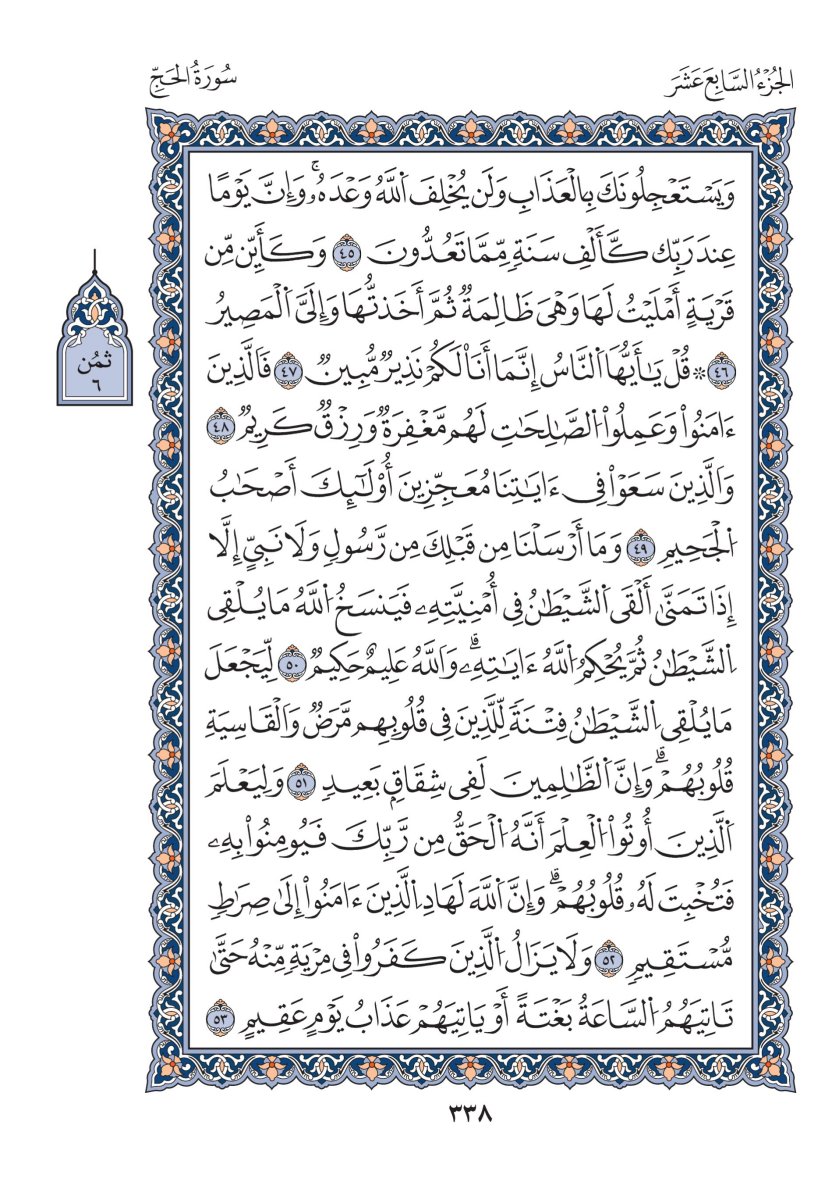 الجُزْءُ السَّابِعَ عَشَرَ
سُورَةُ الحَجِّ
وَيَسْتَعْجِلُونَكَ بِالْعَذَابِ وَلَن يُخْلِفَ اَ۬للَّهُ وَعْدَهُۥۚ وَإِنَّ يَوْمًا
عِندَ رَبِّك كَّأَلْفِ سَنَةٍ مِّمَّا تَعُدُّونَ ٤٥ وَكَأَيِّن مِّن
قَرْيَةٍ أَمْلَيْتُ لَهَا وَهْيَ ظَالِمَةٌ ثُمَّ أَخَذتُّهَا وَإِلَيَّ اَ۬لْمَصِيرُ
٤٦ ۞ قُلْ يَٰأَيُّهَا اَ۬لنَّاسُ إِنَّمَا أَنَا لَكُمْ نَذِيرٌ مُّبِينٌ ٤٧ فَالَّذِينَ
ءَامَنُواْ وَعَمِلُواْ اُ۬لصَّٰلِحَٰتِ لَهُم مَّغْفِرَةٌ وَرِزْقٌ كَرِيمٌ ٤٨
وَالَّذِينَ سَعَوْاْ فِي ءَايَٰتِنَا مُعَجِّزِينَ أُوْلَٰٓئِكَ أَصْحَٰبُ
اُ۬لْجَحِيمِ ٤٩ وَمَا أَرْسَلْنَا مِن قَبْلِكَ مِن رَّسُولٍ وَلَا نَبِيٍّ إِلَّا
إِذَا تَمَنَّىٰ أَلْقَى اَ۬لشَّيْطَٰنُ فِي أُمْنِيَّتِهِۦ فَيَنسَخُ اُ۬للَّهُ مَا يُلْقِي
اِ۬لشَّيْطَٰنُ ثُمَّ يُحْكِمُ اُ۬للَّهُ ءَايَٰتِهِۦۗ وَاللَّهُ عَلِيمٌ حَكِيمٌ ٥٠ لِّيَجْعَلَ
مَا يُلْقِي اِ۬لشَّيْطَٰنُ فِتْنَةً لِّلَّذِينَ فِي قُلُوبِهِم مَّرَضٌ وَالْقَاسِيَةِ
قُلُوبُهُمْۗ وَإِنَّ اَ۬لظَّٰلِمِينَ لَفِي شِقَاقٍ بَعِيدٍ ٥١ وَلِيَعْلَمَ
اَ۬لَّذِينَ أُوتُواْ اُ۬لْعِلْمَ أَنَّهُ اُ۬لْحَقُّ مِن رَّبِّكَ فَيُومِنُواْ بِهِۦ
فَتُخْبِتَ لَهُۥ قُلُوبُهُمْۗ وَإِنَّ اَ۬للَّهَ لَهَادِ اِ۬لَّذِينَ ءَامَنُواْ إِلَىٰ صِرَٰطٍ
مُّسْتَقِيمٍ ٥٢ وَلَا يَزَالُ اُ۬لَّذِينَ كَفَرُواْ فِي مِرْيَةٍ مِّنْهُ حَتَّىٰ
تَاتِيَهُمُ اُ۬لسَّاعَةُ بَغْتَةً أَوْ يَاتِيَهُمْ عَذَابُ يَوْمٍ عَقِيمٍ ٥٣
ثمُن
٦
٣٣٨